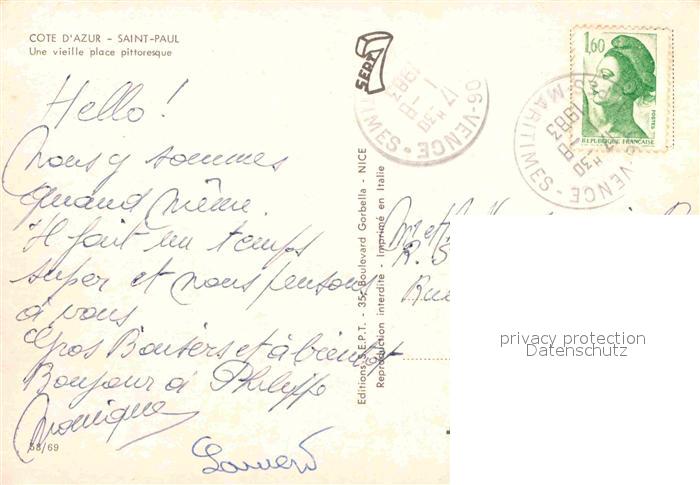 COTE D'AZUR - SAINT-PAUL
Une vieille place pittoresque
Hello!
nous y sommes
quand même.
Il fait un temps
super et nous pensons
à vous
Gros Baisers et à bientôt
Bonjour à Philippe
Monique
58/69
SEPT
Editions S.E.P.T. - 35, Boulevard Gorbella - NICE
Reproduction interdite - Imprimé en Italie
06-VENCE
17 H 30
-8
1983
MARITIMES
1,60
POSTES
REPUBLIQUE FRANÇAISE
06-VENCE
H 30
-8
1983
S-MARITIMES
M et M
R. S
Rue
privacy protection
Datenschutz